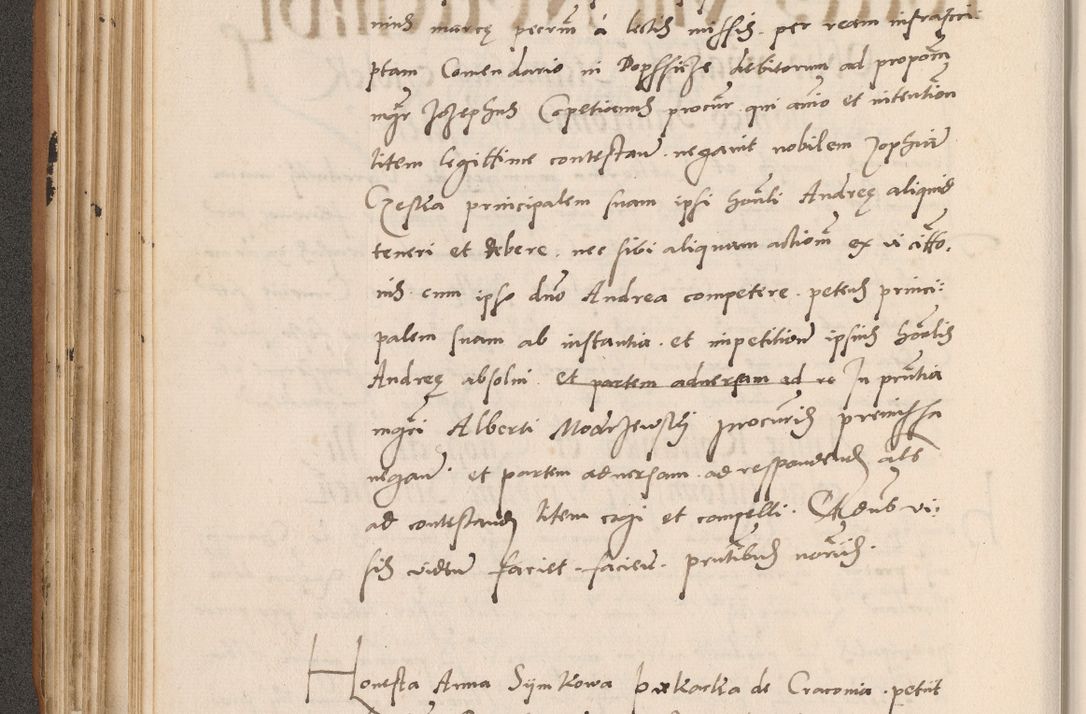 nius marcę pecrm̄ a lectis missis per ream infrascri:
ptam Comendario in Dopssicze debitorum ad proponm̄
mgr Jozephus Copetienus procur. qui anio et intention
litem legittime contestaņ. negavit nobilem Zophiā
Czeska principalem suam ipsi honli Andreę aliquid
teneri et debere. nec sibi aliquam actionm̄ ex vi citto.
nis cum ipso dno Andrea competere. petens princi:
palem suam ab instantia et impetition ipsius honlis
Andreę absolvi et partem adversam ad re In pntia
mgri Alberti Modrzewski procuris premissa
negaņ. et partem adversam ad respondend als
ad contestand litem cogi et compelli. Et dnus vi:
sis videņ faciet faciend. pntibus noriis.
Honesta Anna Symkowa piekarka de Cracovia. petiit